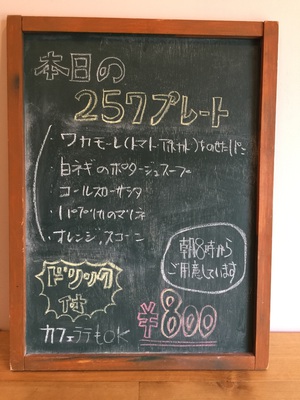 本日の
257プレート
・ワカモーレ(トマト・アボカド)をのせたパン
・白ネギのポタージュスープ
・コールスローサラダ
・パプリカのマリネ
・オレンジスコーン
朝8時から
ご用意しています
ドリンク
付
カフェラテもOK
¥800